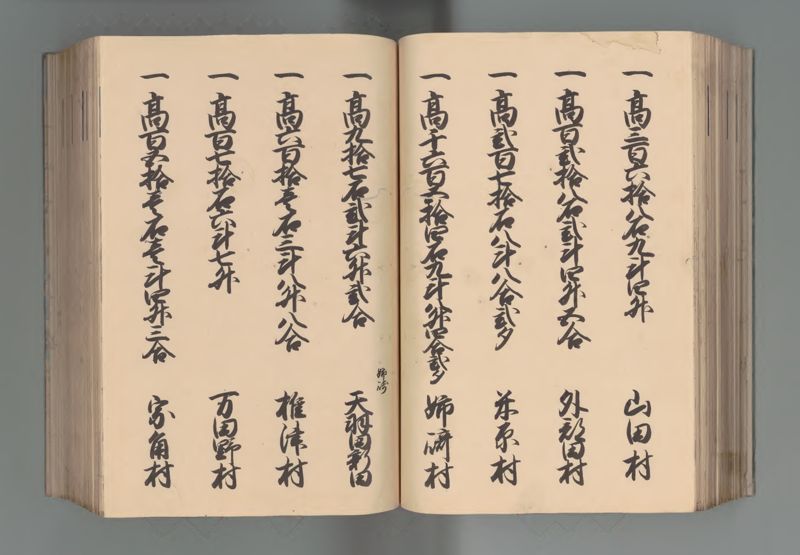 一 高三百六拾八石九斗四升 山田村
一 高百弐拾八石弐斗四升五合 外部田村
一 高弐百七拾石八斗八合弐夕 米原村
一 高千六百五拾四石九斗八升四合弐夕 姉崎村
姉崎
一 高九拾七石弐斗六升弐合 天羽田新田
一 高六百拾壱石三斗八升八合 椎津村
一 高百七拾石六斗七升 万田野村
一 高百五拾壱石壱斗四升三合 寄角村